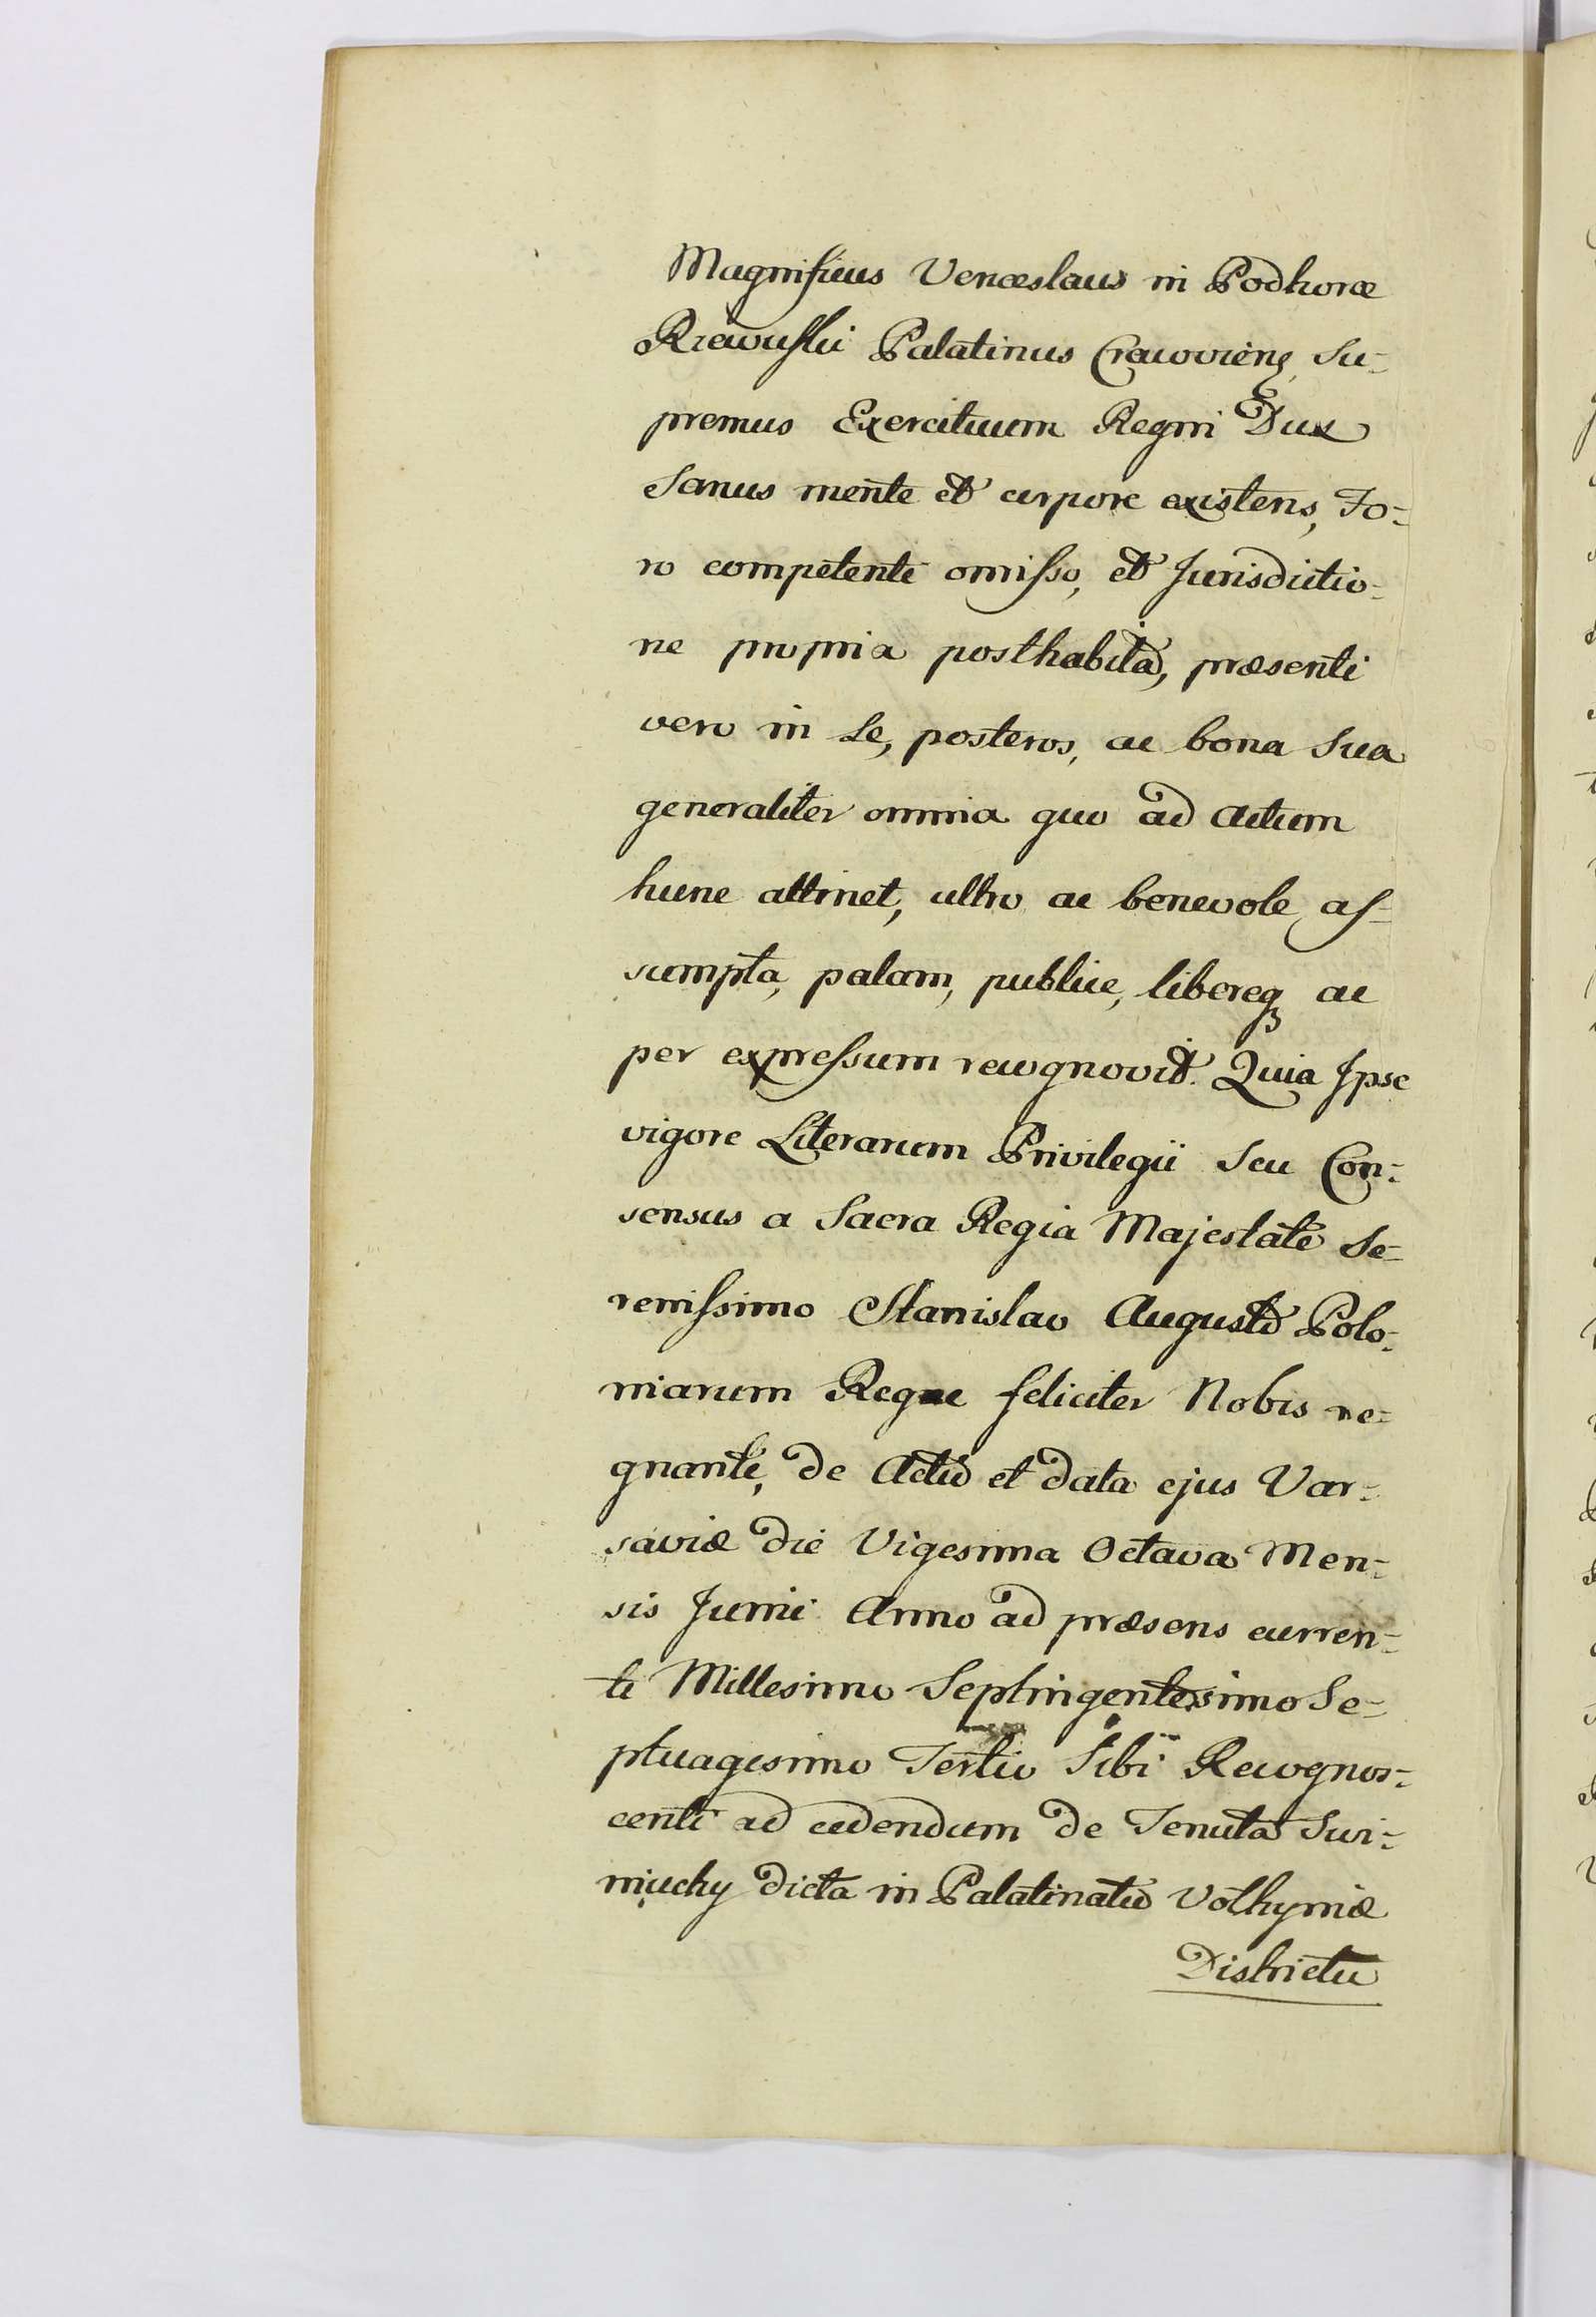 Magnificus Venceslaus in Podhorce
Rzewuski Palatinus Cracovieng Su=
premus Exercituum Regni Dux
Sanus mente et corpore existens, Fo=
ro competenti omisso, et Jurisdictio=
ne propria posthabita, præsenti
vero in Se, posteros, ac bona Sua
generaliter omnia quo ad Actum
hunc attinet, ultro ac benevole as=
sumpta, palam, publice, libereq ac
per expressum recognovit. Quia Ipse
vigore Literarum Privilegii Seu Con=
sensus a Sacra Regia Majestate Se=
renissimo Stanislao Augusto Polo=
niarum Rege feliciter Nobis re=
gnante, de Actu et data ejus Var=
saviæ die Vigesima Octava Men=
sis Junii Anno ad præsens curren=
ti Millesimo Septingentesimo Se=
ptuagesimo Tertio Sibi Recognos=
centi ad cedendum de Tenuta Swi=
niuchy dicta in Palatinatu Volhyniæ
Districtu